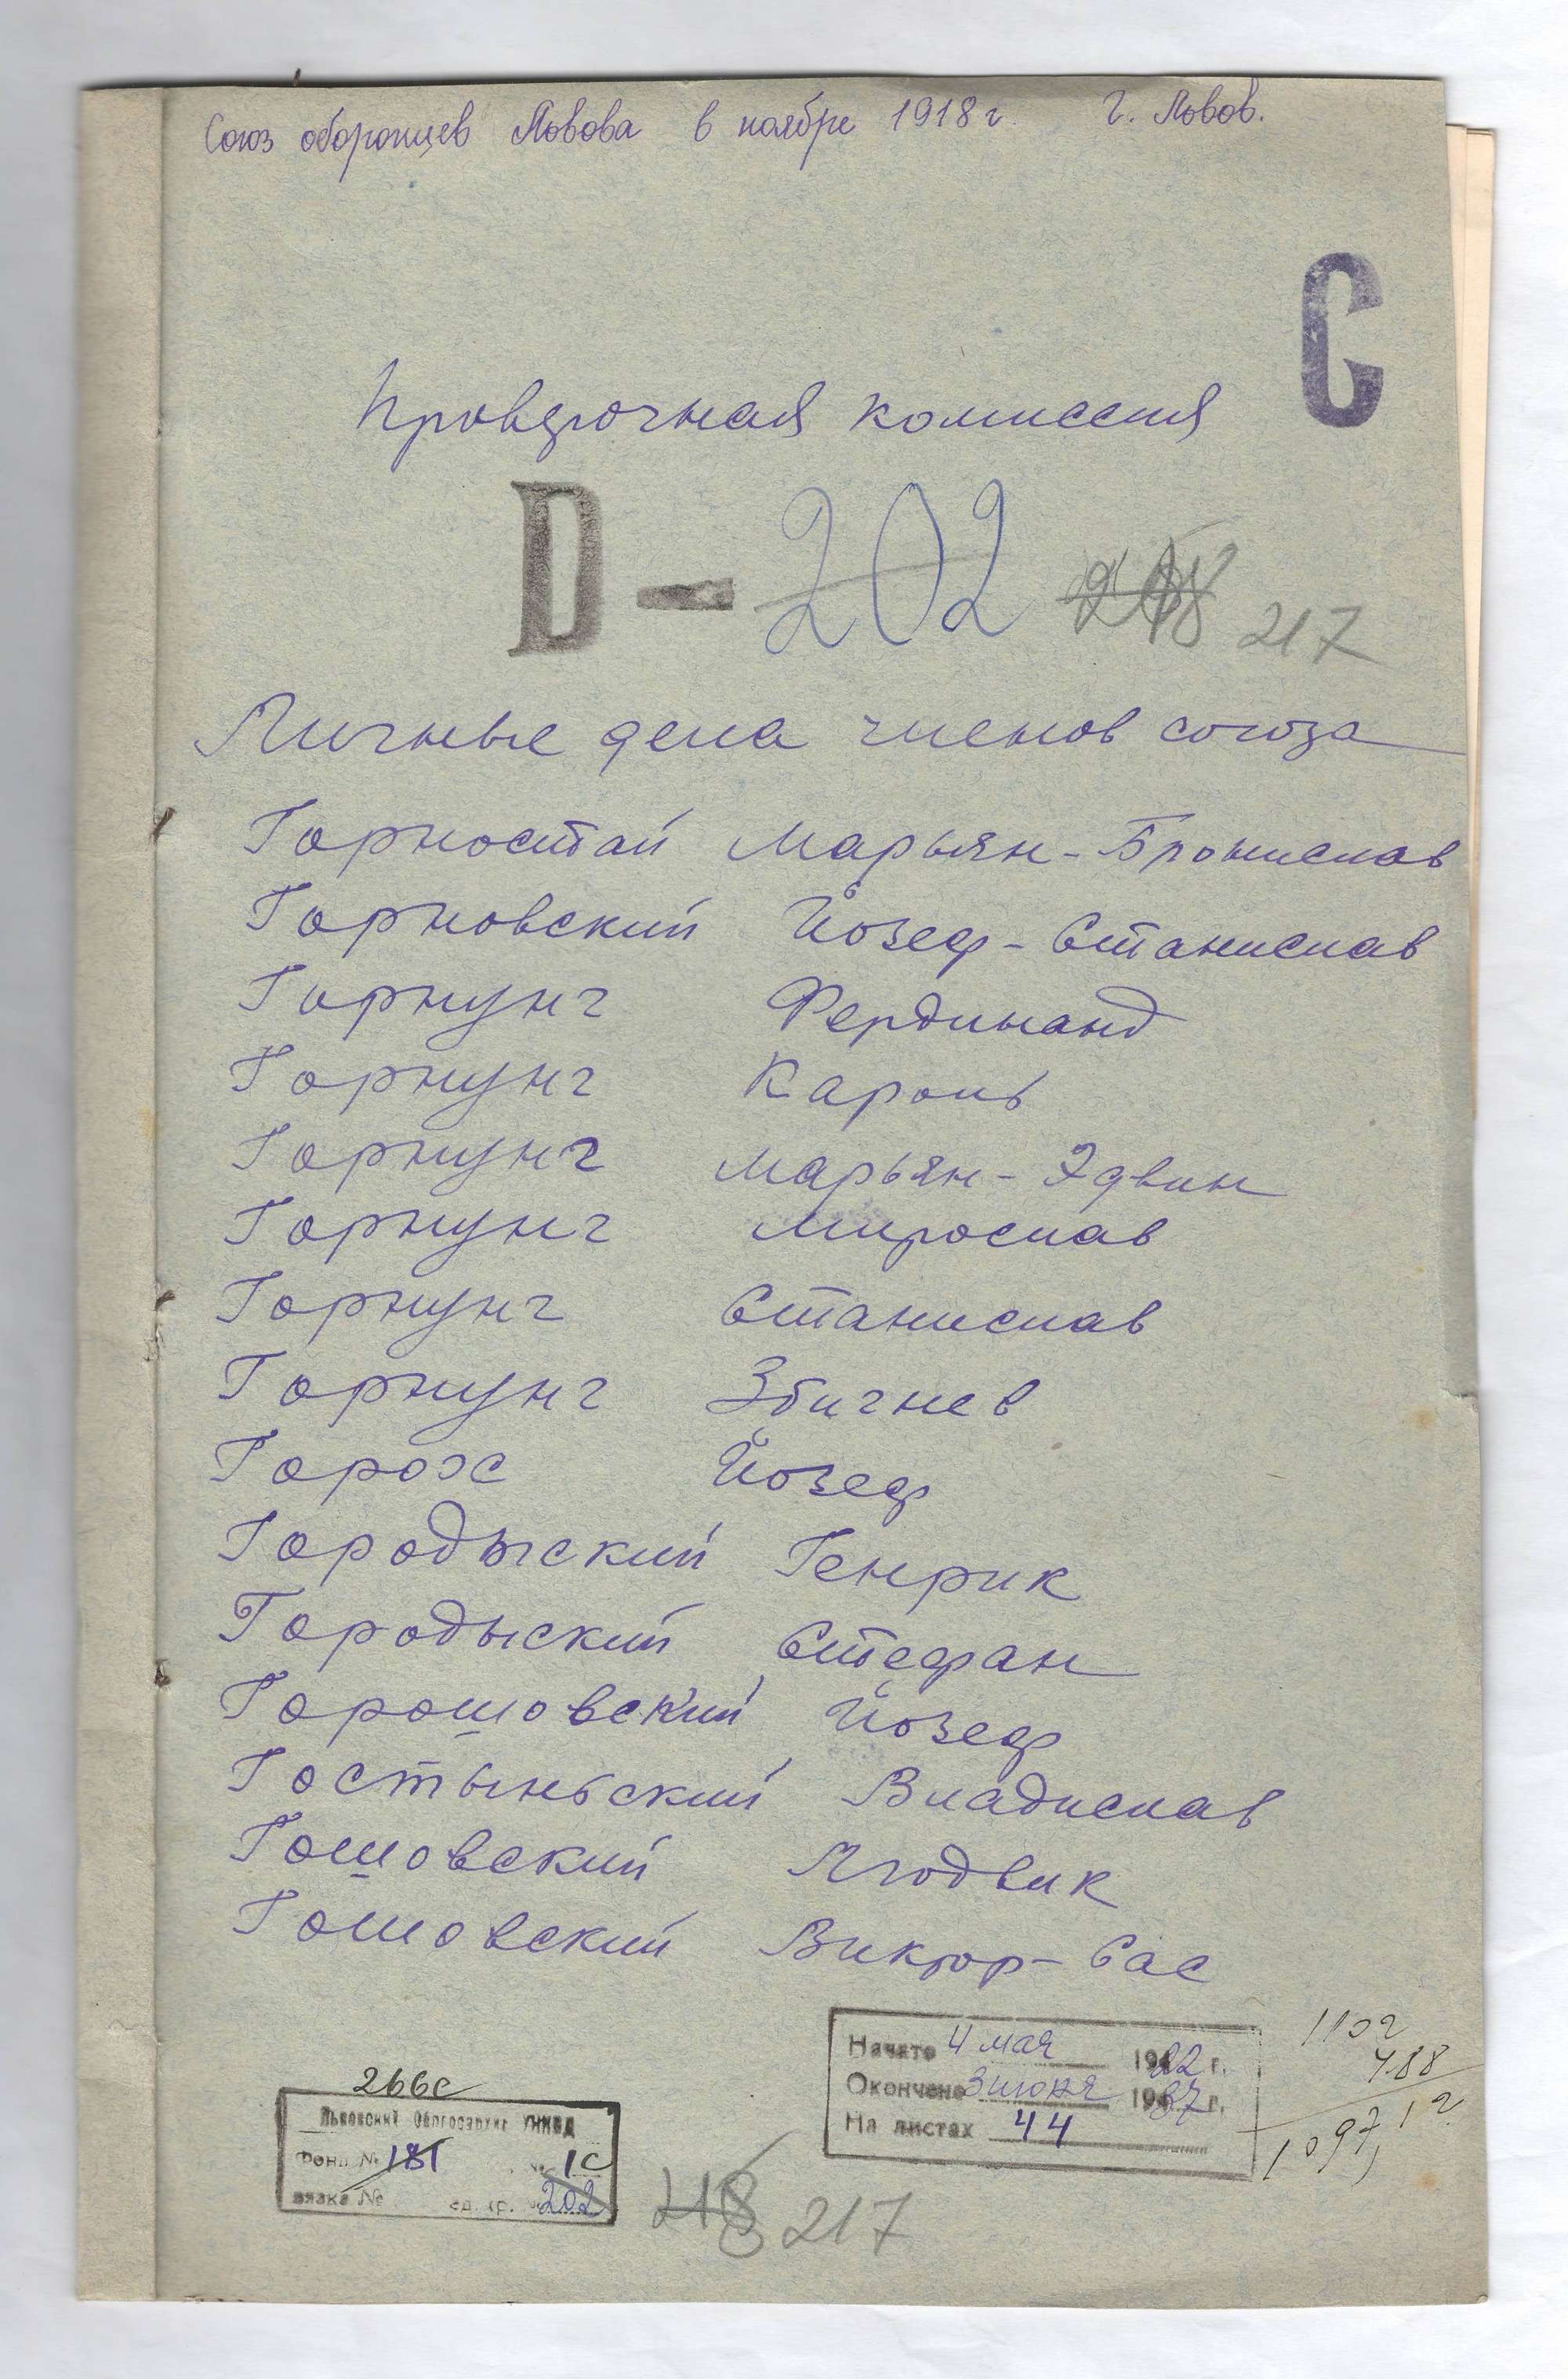 Союз оборонцев Львова в ноябре 1918 г. г. Львов.
С
Проверочная комиссия
D-202 218 217
Личные дела членов союза
Горностай Марьян-Бронислав
Горновский Йозеф-Станислав
Горнунг Фердинанд
Горнунг Кароль
Горнунг Марьян-Эдвин
Горнунг Мирослав
Горнунг Станислав
Горнунг Збигнев
Горох Йозеф
Городыский Генрик
Городыский Стефан
Горошовский Йозеф
Гостыньский Владислав
Гошовский Людвик
Гошовский Виктор-Сас
Начато 4 мая 1922 г.
Окончено 3 июня 1937 г.
На листах 44
1102
488
1097, 12
266с
Львовский Облгосархив УНКВД
Фонд № 181 № 1с
вязка № ед. хр. 202
218 217